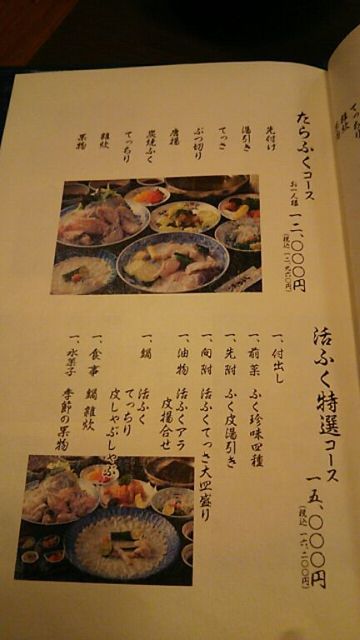 たらふくコース
お一人様 一二、〇〇〇円
(税込 一二、九六〇円)
先付け
湯引き
てっさ
ぶつ切り
唐揚
炭焼ふく
てっちり
雑炊
果物
活ふく特選コース
一五、〇〇〇円
(税込 一六、二〇〇円)
一、付出し
一、前菜 ふく珍味四種
一、先附 ふく皮湯引き
一、向附 活ふくてっさ大皿盛り
一、油物 活ふくアラ
皮揚合せ
一、鍋 活ふく
てっちり
皮しゃぶしゃぶ
一、食事 鍋雑炊
一、水菓子 季節の果物